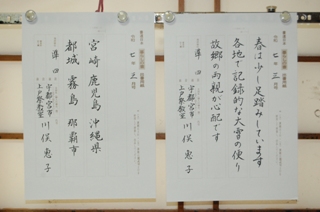 春は少し足踏みしています
各地で記録的な大雪の便り
故郷の両親が心配です
準四
宇都宮市
上戸祭教室
川俣恵子
宮崎 鹿児島 沖縄県
都城 霧島 那覇市
準四
宇都宮市
上戸祭教室
川俣恵子